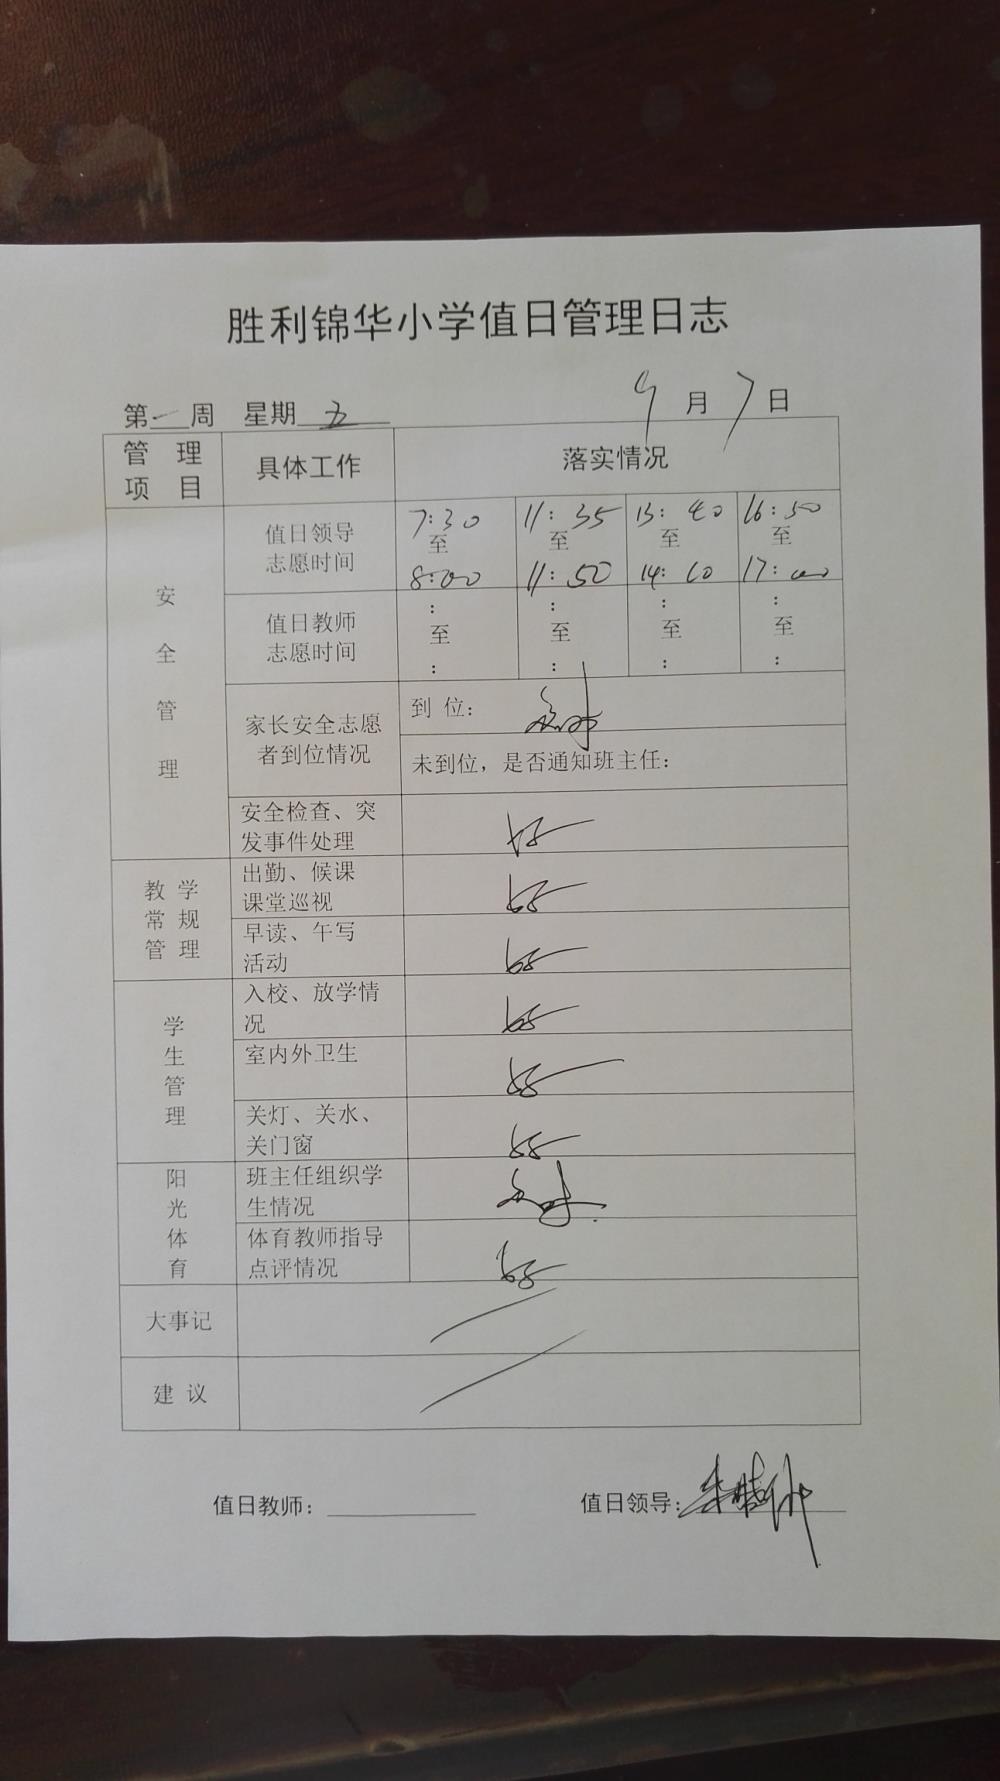 胜利锦华小学值日管理日志
第一周 星期五 9月7日
管 理
项 目
具体工作
落实情况
安
全
管
理
值日领导
志愿时间
7:30 至 8:00
11:35 至 11:50
13:40 至 14:10
16:50 至 17:00
值日教师
志愿时间
: 至 :
: 至 :
: 至 :
: 至 :
家长安全志愿
者到位情况
到 位:
未到位，是否通知班主任:
安全检查、突
发事件处理
好
教 学
常 规
管 理
出勤、候课
课堂巡视
好
早读、午写
活动
好
学
生
管
理
入校、放学情
况
好
室内外卫生
好
关灯、关水、
关门窗
好
阳
光
体
育
班主任组织学
生情况
体育教师指导
点评情况
好
大事记
建 议
值日教师:
值日领导: